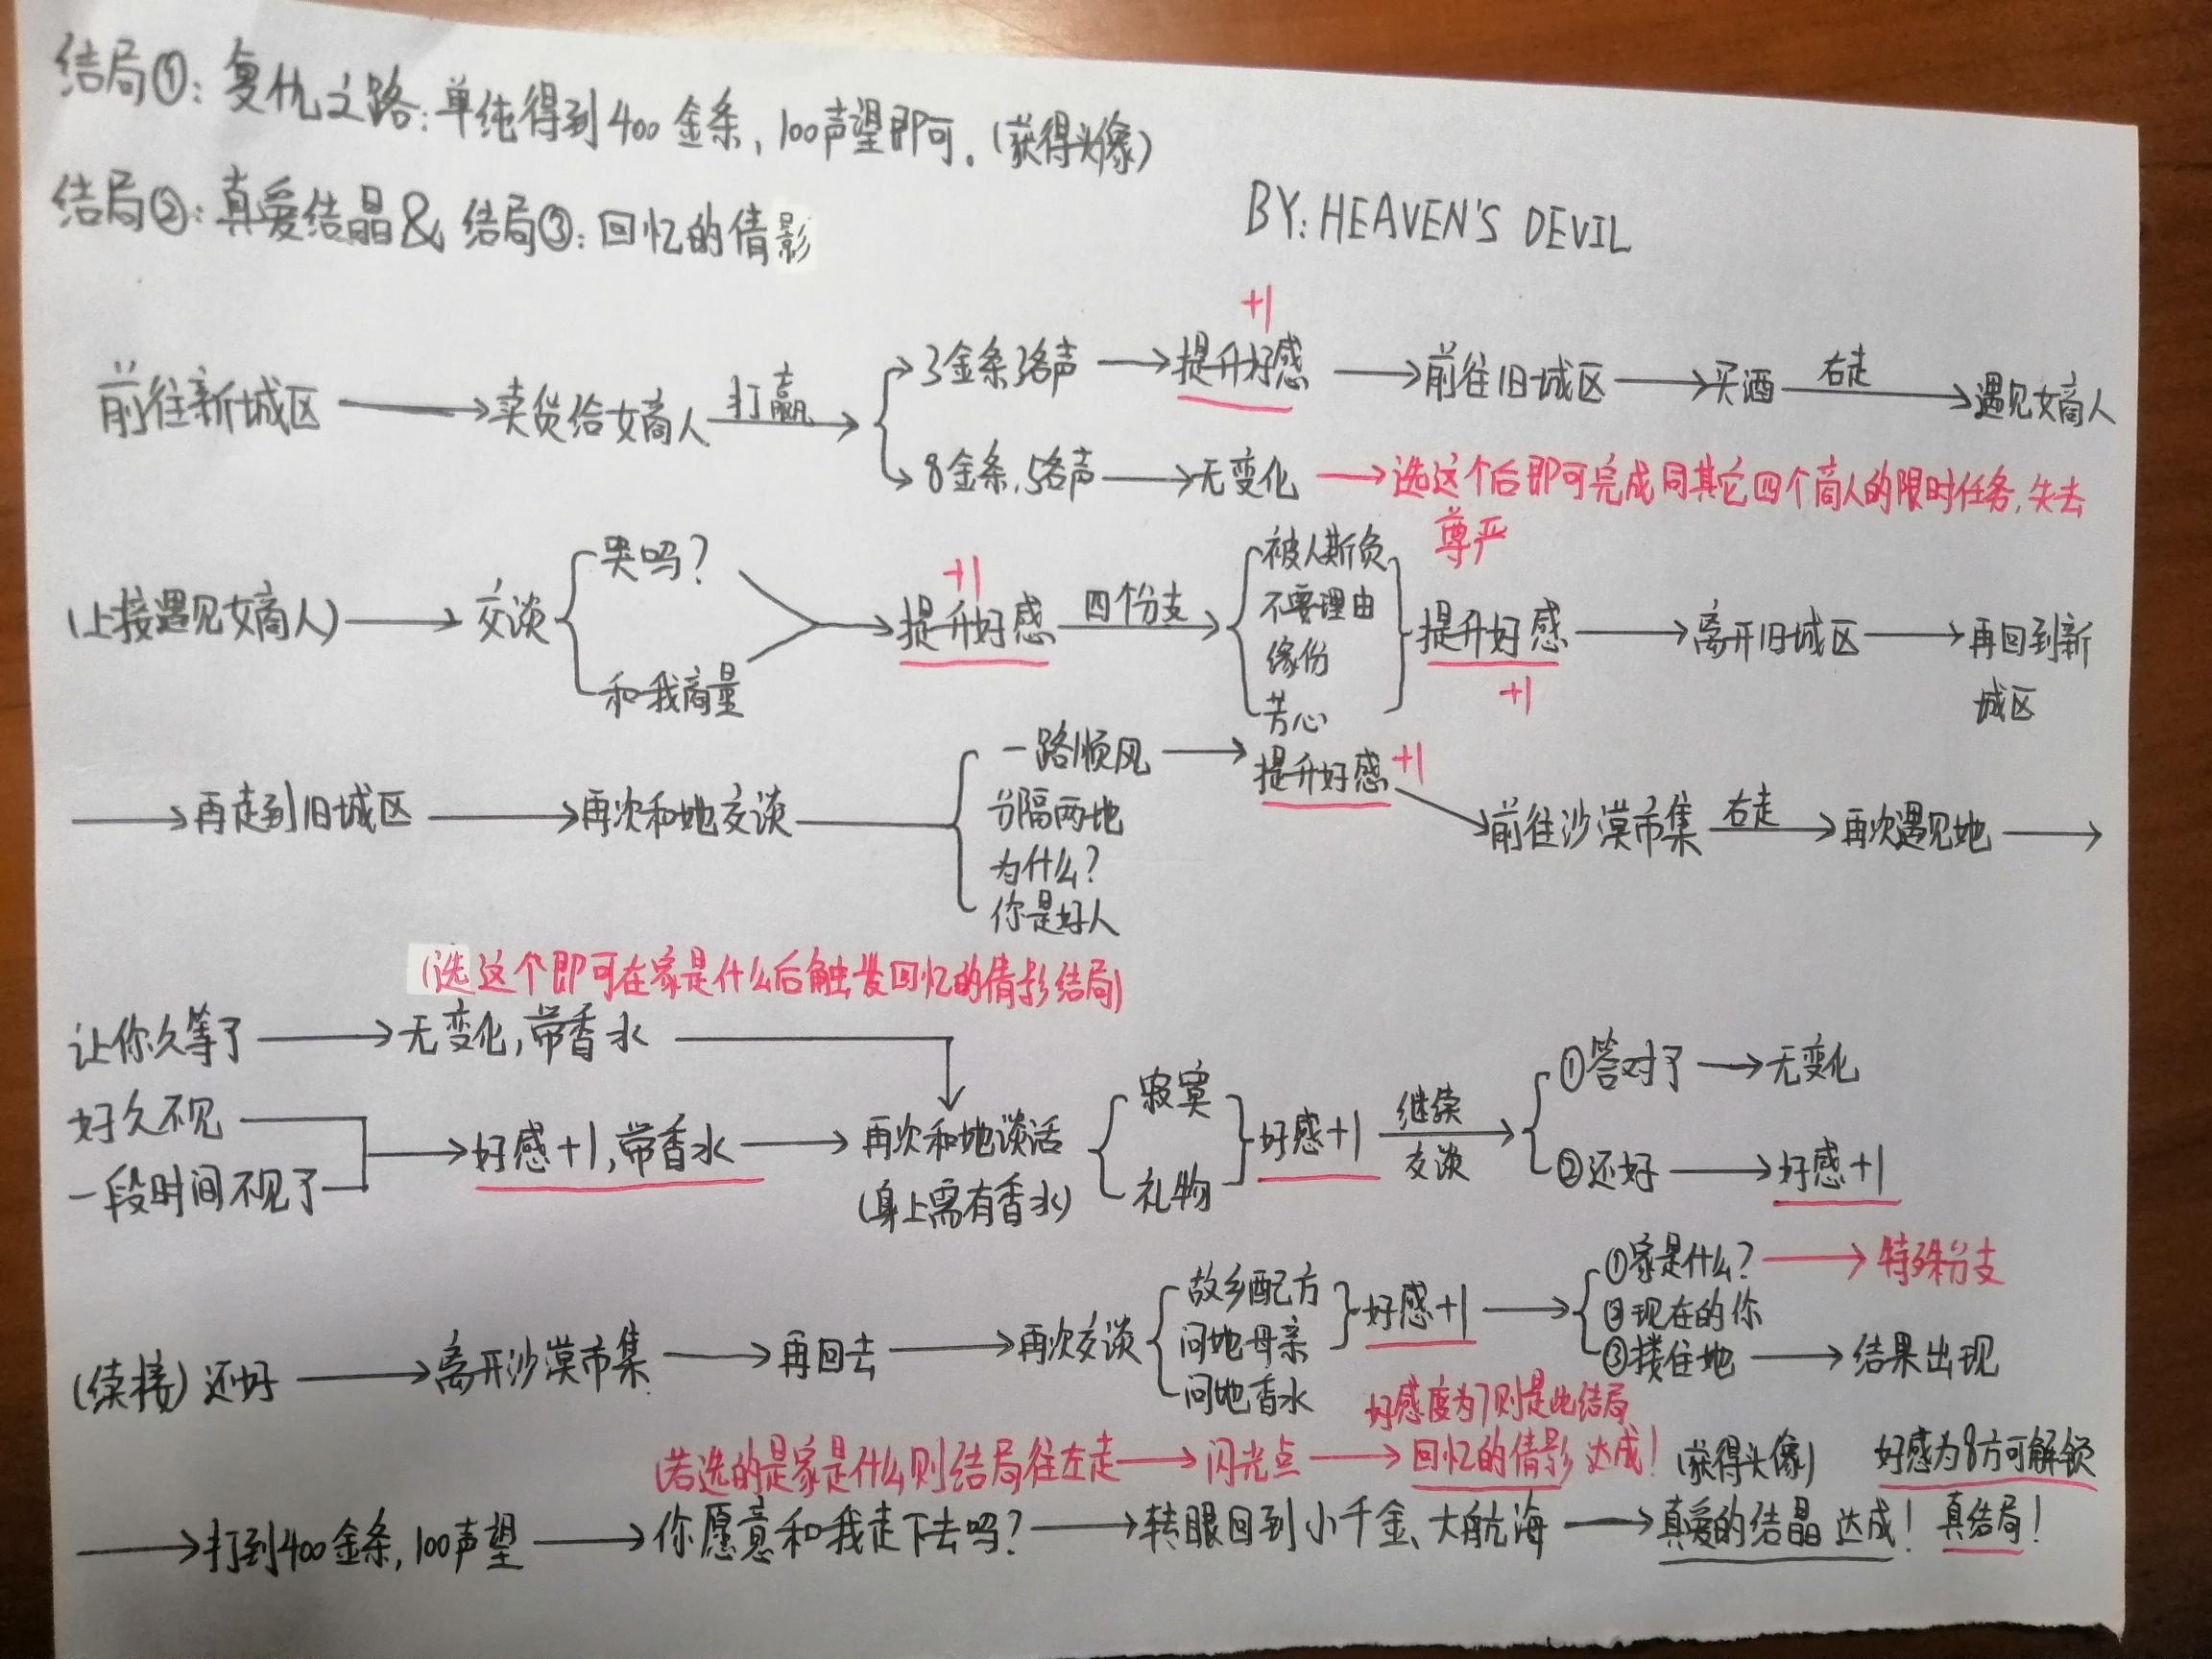 结局①：复仇之路：单纯得到400金条，100声望即可。（获得头像）
结局②：真爱结晶& 结局③：回忆的倩影
BY: HEAVEN'S DEVIL
+1
前往新城区 → 卖货给女商人 打赢 → 3金条3名声 → 提升好感 → 前往旧城区 → 买酒 右走 → 遇见女商人
8金条，5名声 → 无变化 → 选这个后即可完成同其它四个商人的限时任务，失去
尊严
（上接遇见女商人） → 交谈
哭吗？
和我商量
→ 提升好感 +1 四个分支 →
被人斯负
不要理由
缘份
芳心
提升好感 +1 → 离开旧城区 → 再回到新
城区
→ 再走到旧城区 → 再次和她交谈
一路顺风 → 提升好感 +1
分隔两地
为什么？
你是好人
前往沙漠市集 右走 → 再次遇见她 →
（选这个即可在家是什么后触发回忆的倩影结局）
让你久等了 → 无变化，带香水
好久不见
一段时间不见了
→ 好感+1，带香水 → 再次和她谈话
（身上需有香水）
寂寞
礼物
好感+1 继续
交谈 →
①答对了 → 无变化
②还好 → 好感+1
（续接）还好 → 离开沙漠市集 → 再回去 → 再次交谈
故乡配方
问她母亲
问她香水
好感+1 →
①家是什么？ → 特殊分支
②现在的你
③搂住她 → 结果出现
好感度为7则是此结局
（若选的是家是什么则结局往左走 → 闪光点 → 回忆的倩影 达成！（获得头像） 好感为8方可解锁
→ 打到400金条，100声望 → 你愿意和我走下去吗？ → 转眼回到小千金、大航海 → 真爱的结晶 达成！真结局！